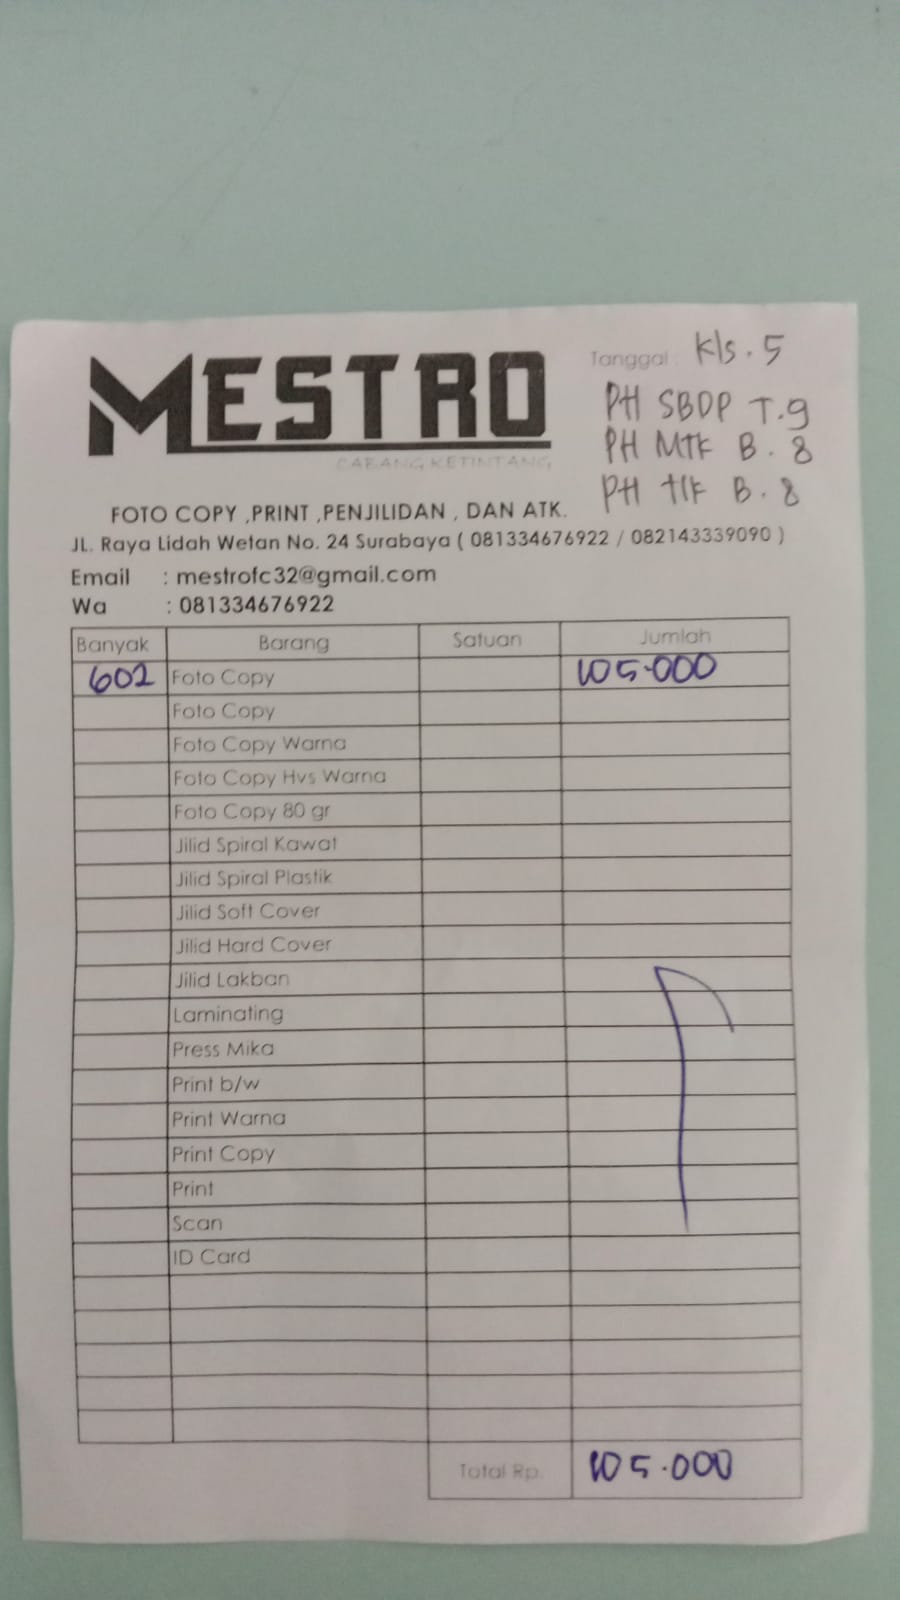 MESTRO
CABANG KETINTANG
Tanggal : Kls. 5
PH SBDP T.9
PH MTK B. 8
PH B. 8
FOTO COPY ,PRINT ,PENJILIDAN , DAN ATK.
JL. Raya Lidah Wetan No. 24 Surabaya ( 081334676922 / 082143339090 )
Email : mestrofc32@gmail.com
Wa : 081334676922
Banyak Barang Satuan Jumlah
602 Foto Copy 105.000
Foto Copy
Foto Copy Warna
Foto Copy Hvs Warna
Foto Copy 80 gr
Jilid Spiral Kawat
Jilid Spiral Plastik
Jilid Soft Cover
Jilid Hard Cover
Jilid Lakban
Laminating
Press Mika
Print b/w
Print Warna
Print Copy
Print
Scan
ID Card
Total Rp. 105.000